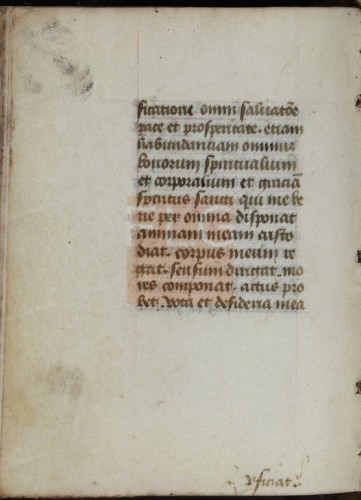 ficatione omni salvatōe
pace et prosperitate. etiam
habundantiam omnium
bonorum spiritualium
et corporalium et graciā
spiritus sancti qui me be
ne per omnia disponat
animam meam custo
diat. corpus meum re
gat. sensum dirigat. mo
res componat. actus pro
bet. vota et desideria mea
ꝑficiat.